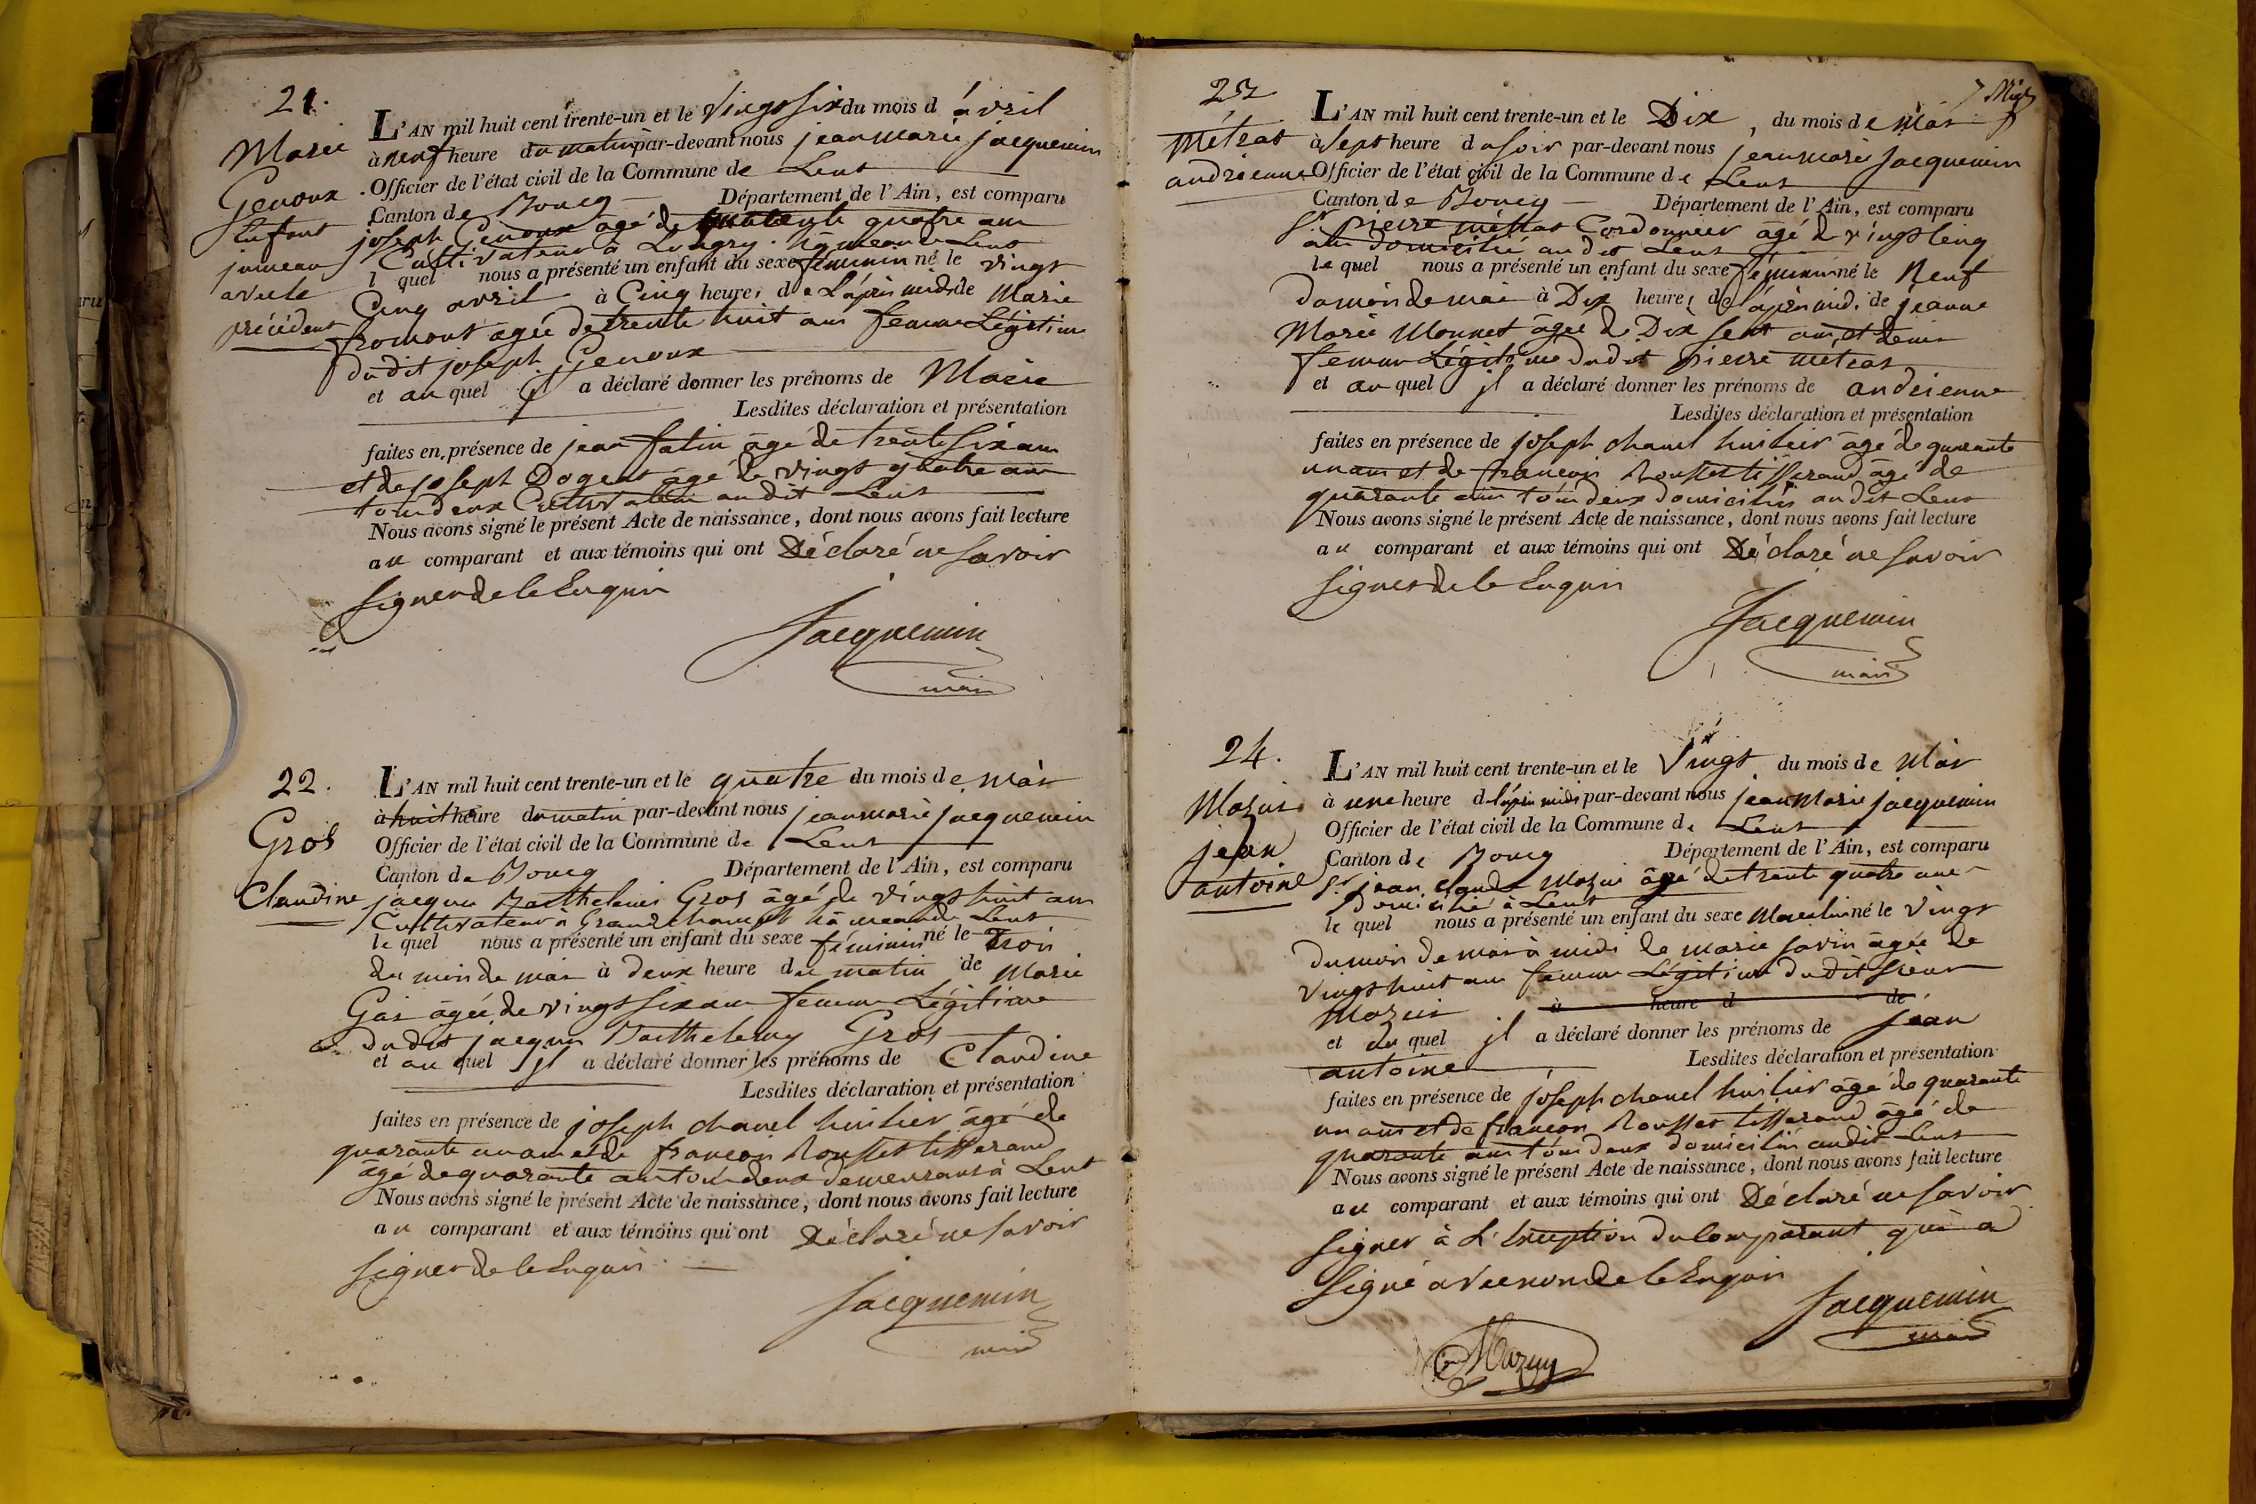 21.
Marie
Genoux
Enfant
jumeau
avec le
précédent
L'AN mil huit cent trente-un et le vingt six du mois d'avril
à neuf heure du matin par-devant nous jean marie jacquemin
Officier de l'état civil de la Commune de Lent
Canton de Bourg Département de l'Ain, est comparu
joseph Genoux âgé de quatre ans
Cultivateur à hâmeau de Lent
lequel nous a présenté un enfant du sexe féminin né le vingt
Cinq avril à Cinq heures de L'après midi de Marie
fromont agée de trente huit ans femme Légitime
dudit joseph Genoux
et au quel il a déclaré donner les prénoms de Marie
Lesdites déclaration et présentation
faites en présence de jean fatin âgé de trente six ans
et de joseph Dogent âgé de vingt quatre ans
tous deux Cultivateur audit Lent
Nous avons signé le présent Acte de naissance, dont nous avons fait lecture
au comparant et aux témoins qui ont Déclaré ne savoir
signer de le Enquis
Jacquemin
maire
22.
Gros
Claudine
L'AN mil huit cent trente-un et le quatre du mois de mai
à huit heure du matin par-devant nous jean marie jacquemin
Officier de l'état civil de la Commune de Lent
Canton de Bourg Département de l'Ain, est comparu
jacque Barthelemi Gros âgé de vingt huit ans
Cultivateur à Grandchamp hâmeau de Lent
lequel nous a présenté un enfant du sexe féminin né le Trois
du mois de mai à deux heure du matin de Marie
Gai âgée de vingt six ans femme Légitime
dudit jacques Barthelemy Gros
et au quel il a déclaré donner les prénoms de Claudine
Lesdites déclaration et présentation
faites en présence de joseph chanel huilier âgé de
quarante un ans et de françois Rousset tisserand
âgé de quarante ans tous deux demeurant à Lent
Nous avons signé le présent Acte de naissance, dont nous avons fait lecture
au comparant et aux témoins qui ont Déclaré ne savoir
signer de le Enquis
Jacquemin
maire
23
Métras
andrienne
L'AN mil huit cent trente-un et le Dix, du mois de Mai
à Sept heure du soir par-devant nous jean marie jacquemin
Officier de l'état civil de la Commune de Lent
Canton de Bourg Département de l'Ain, est comparu
Sr. pierre métras Cordonnier âgé de vingt Cinq
ans domicilié audit Lent
lequel nous a présenté un enfant du sexe féminin né le Neuf
du mois de mai à Dix heures de l'après midi de jeanne
Marie Monnet âgée de Dix sept ans et demi
femme Légitime dudit pierre métras
et au quel il a déclaré donner les prénoms de andrienne
Lesdites déclaration et présentation
faites en présence de joseph chanel huilier âgé de quarante
un ans et de françois Rousset tisserand âgé de
quarante ans tous deux domiciliés audit Lent
Nous avons signé le présent Acte de naissance, dont nous avons fait lecture
au comparant et aux témoins qui ont Déclaré ne savoir
signer de le Enquis
Jacquemin
maire
24.
Mazui
jean
antoine
L'AN mil huit cent trente-un et le Vingt du mois de Mai
à une heure de l'après midi par-devant nous jean Marie jacquemin
Officier de l'état civil de la Commune de Lent
Canton de Bourg Département de l'Ain, est comparu
Sr. jean claude Mazui âgé de trente quatre ans
domicilié à Lent
lequel nous a présenté un enfant du sexe Masculin né le vingt
du mois de mai à midi de marie savin âgée de
vingt huit ans femme Légitime dudit sieur
Mazui à heure d de
et au quel il a déclaré donner les prénoms de jean
antoine Lesdites déclaration et présentation
faites en présence de joseph chanel huilier âgé de quarante
un ans et de françois Rousset tisserand âgé de
quarante ans tous deux domiciliés audit Lent
Nous avons signé le présent Acte de naissance, dont nous avons fait lecture
au comparant et aux témoins qui ont Déclaré ne savoir
signer à L'exception du Comparant qui a
signé avec nous de le Enquis
Jacquemin
maire
Mazuy